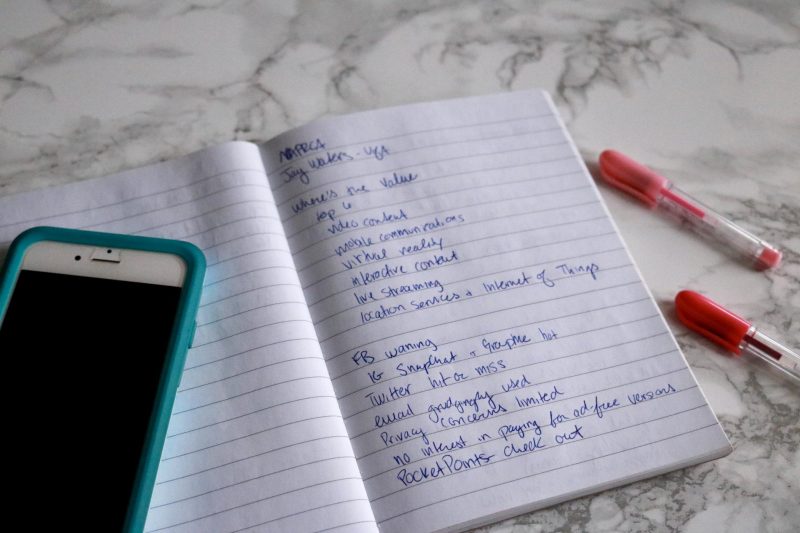 Jay Waters - UGA
Where's the value
top 6
video content
mobile communications
virtual reality
interactive content
live streaming
location services + Internet of Things
FB waning
IG Snapchat + GroupMe hot
Twitter hit or miss
email grudgingly used
Privacy concerns limited
no interest in paying for ad-free versions
PocketPoints check out